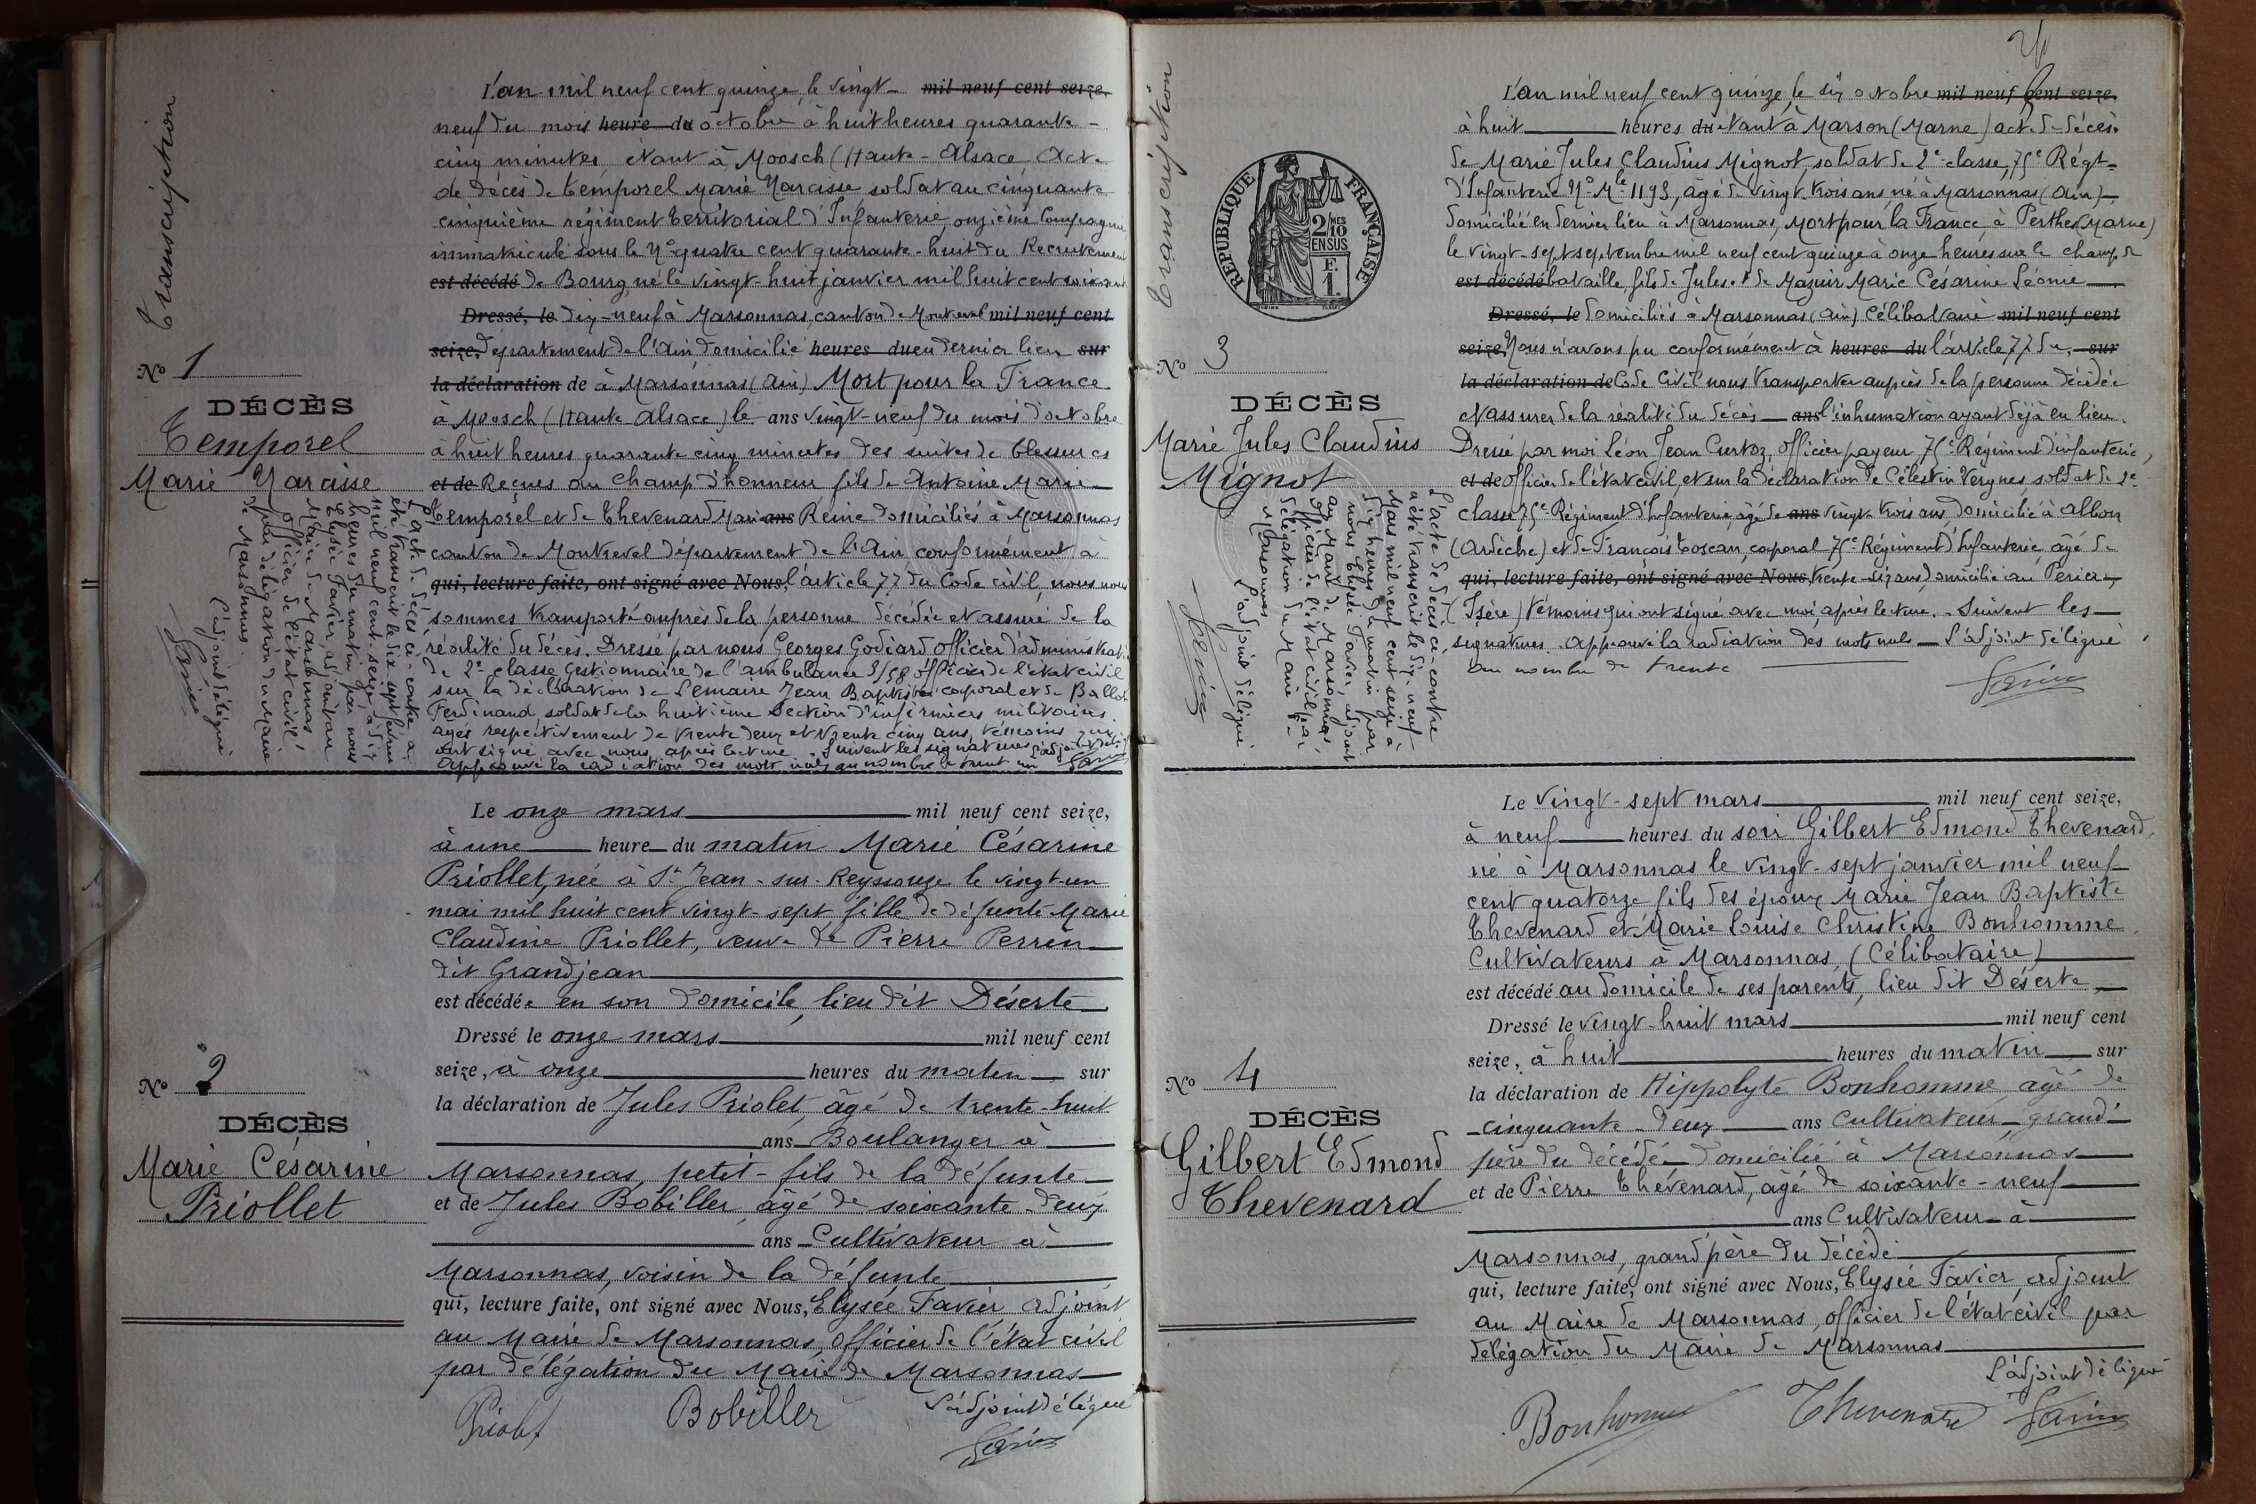 Transcription
N° 1
DÉCÈS
Temporel
Marie Narcisse
L'acte de décès ci-contre a
été transcrit le dix sept février
mil neuf cent seize, à dix
heures du matin, par nous
Elysée Favier, adjoint au
Maire de Marsonnas
officier de l'état civil
par délégation du Maire
de Marsonnas.
L'adjoint délégué
Favier
L'an mil neuf cent quinze, le vingt- mil neuf cent seize,
neuf du mois heure du octobre à huit heures quarante-
cinq minutes, étant à Moosch (Haute-Alsace Acte
de décès de Temporel Marie Narcisse soldat au cinquante
cinquième régiment Territorial d'Infanterie, onzième Compagnie
immatriculé sous le N° quatre cent quarante-huit du Recrutement
est décédé de Bourg, né le vingt-huit janvier mil huit cent soixante
Dressé, le dix-neuf à Marsonnas, canton de Montrevel mil neuf cent
seize, département de l'Ain domicilié heures du en dernier lieu sur
la déclaration de à Marsonnas (Ain) Mort pour la France
à Moosch (Haute Alsace) le ans vingt-neuf du mois d'octobre
à huit heures quarante cinq minutes des suites de blessures
et de Reçues au champ d'honneur fils de Antoine Marie
Temporel et de Thevenard Marie ans Reine domiciliés à Marsonnas
canton de Montrevel département de l'Ain conformément à
qui, lecture faite, ont signé avec Nous, l'article 77 du Code civil, nous nous
sommes transporté auprès de la personne décédée et assuré de la
réalité du décès. Dressé par nous Georges Godiard officier d'administration
de 2e classe Gestionnaire de l'ambulance 3/58 officier de l'état civil
sur la déclaration de Lemaire Jean Baptiste caporal et de Ballot
Ferdinand, soldat de la huitième section d'infirmiers militaires.
âgés respectivement de trente deux et trente cinq ans, témoins qui
ont signé avec nous, après lecture. Suivent les signatures L'adjoint délégué
Approuvé la radiation des mots nuls au nombre de trente un Favier
N° 2
DÉCÈS
Marie Césarine
Priollet
Le onze mars mil neuf cent seize,
à une heure du matin Marie Césarine
Priollet, née à St Jean-sur-Reyssouze le vingt-un
mai mil huit cent vingt-sept fille de défunte Marie
Claudine Priollet, veuve de Pierre Perrin
dit Grandjean
est décédée en son domicile, lieu dit Déserte
Dressé le onze mars mil neuf cent
seize, à onze heures du matin sur
la déclaration de Jules Priolet, âgé de trente-huit
ans Boulanger à
Marsonnas, petit-fils de la défunte
et de Jules Bobiller, âgé de soixante-deux
ans Cultivateur à
Marsonnas, voisin de la défunte
qui, lecture faite, ont signé avec Nous, Elysée Favier adjoint
au Maire de Marsonnas, officier de l'état civil
par délégation du Maire de Marsonnas
L'adjoint délégué
Priolet Bobiller Favier
Transcription
RÉPUBLIQUE FRANÇAISE
2/10MES
EN SUS
F.
1.
N° 3
DÉCÈS
Marie Jules Claudius
Mignot
L'acte de décès ci-contre
a été transcrit le dix-neuf
Mars mil neuf cent seize à
dix heures du matin par
nous Elysée Favier, adjoint
au Maire de Marsonnas
officier de l'état civil par
délégation du Maire de
Marsonnas
L'adjoint délégué
Favier
L'an mil neuf cent quinze, le six octobre mil neuf cent seize,
à huit heures du étant à Marson (Marne) acte de décès
de Marie Jules Claudius Mignot, soldat de 2e classe, 75e Régt
d'Infanterie N° Mle 1193, âgé de vingt-trois ans, né à Marsonnas (Ain)
domicilié en dernier lieu à Marsonnas, Mort pour la France, à Perthes (Marne)
le vingt-sept septembre mil neuf cent quinze à onze heures sur le champ de
est décédé bataille, fils de Jules et de Mazuir Marie Césarine Léonie
Dressé, le domiciliés à Marsonnas (Ain) Célibataire mil neuf cent
seize, Nous n'avons pu conformément à heures du l'article 77 du sur
la déclaration de Code Civil nous transporter auprès de la personne décédée
et assurer de la réalité du décès ans l'inhumation ayant déjà eu lieu.
Dressé par moi Léon Jean Curtoz, officier payeur 75e Régiment d'infanterie,
et de officier de l'état civil, et sur la déclaration de Célestin Vergnes soldat de 2e
classe 75e Régiment d'Infanterie, âgé de ans vingt-trois ans, domicilié à Albon
(Ardèche) et de François Toscan, caporal 75e Régiment d'Infanterie âgé de
qui, lecture faite, ont signé avec Nous, trente-six ans domicilié au Périer
(Isère) témoins qui ont signé avec moi, après lecture. Suivent les
signatures. Approuvé la radiation des mots nuls L'adjoint délégué
au nombre de trente
Favier
N° 4
DÉCÈS
Gilbert Edmond
Thevenard
Le vingt-sept mars mil neuf cent seize,
à neuf heures du soir Gilbert Edmond Thevenard,
né à Marsonnas le vingt-sept janvier mil neuf
cent quatorze fils des époux Marie Jean Baptiste
Thevenard et Marie Louise Christine Bonhomme
Cultivateurs à Marsonnas (Célibataire)
est décédé au domicile de ses parents, lieu dit Déserte
Dressé le vingt-huit mars mil neuf cent
seize, à huit heures du matin sur
la déclaration de Hippolyte Bonhomme, âgé de
cinquante-deux ans cultivateur grand-
père du décédé domicilié à Marsonnas
et de Pierre Thévenard, âgé de soixante-neuf
ans Cultivateur à
Marsonnas, grand'père du décédé
qui, lecture faite, ont signé avec Nous, Elysée Favier, adjoint
au Maire de Marsonnas, officier de l'état civil par
délégation du Maire de Marsonnas
L'adjoint délégué
Bonhomme Thevenard Favier